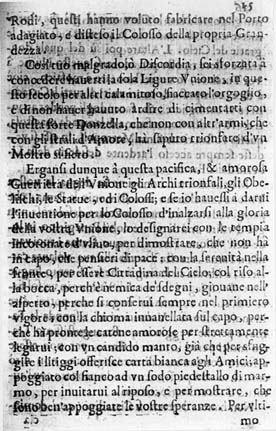 Rodi, questi hanno voluto fabricare nel Porto
adagiato, e disteso il Colosso della propria Gran-
dezza.
Così tuo malgrado, ò Discordia, sei sforzata à
concedere haversi la sola Ligure Vnione, in que-
sto secolo per altro calamitoso, fiaccato l'orgoglio,
e di non haver hauuto ardire di cimentarti con
questa forte Donzella, che non con altr'armi, che
con gli strali d'Amore, hà saputo trionfare d'vn
Mostro sì fiero.
Ergansi dunque à questa pacifica, & amorosa
Guerriera dell'Vnione gli Archi trionfali, gli Obe-
lischi, le Statue, ed i Colossi; e se io hauessi à darui
l'inuentione per lo Colosso d'inalzarsi alla gloria
della vostra Vnione, lo designarei con le tempia
incoronate d'vliuo, per dimostrare, che non hà
in capo, che pensieri di pace: con la serenità nella
fronte, per essere Cittadina del Cielo, col riso al-
la bocca, perch'è nemica de'sdegni, giouane nell'
aspetto, perche si conserui sempre nel primiero
vigore; con la chioma innanellata sul capo, per-
che hà pronte le catene amorose per strettamente
legarui; con vn candido manto, già che per
i litiggi offerisce carta bianca agli Amici; ap-
poggiato col fianco ad vn sodo piedestallo di mar-
mo, per inuitarui al riposo, e per mostrare, che
sono ben'appoggiate le vostre speranze. Per vlti-
mo